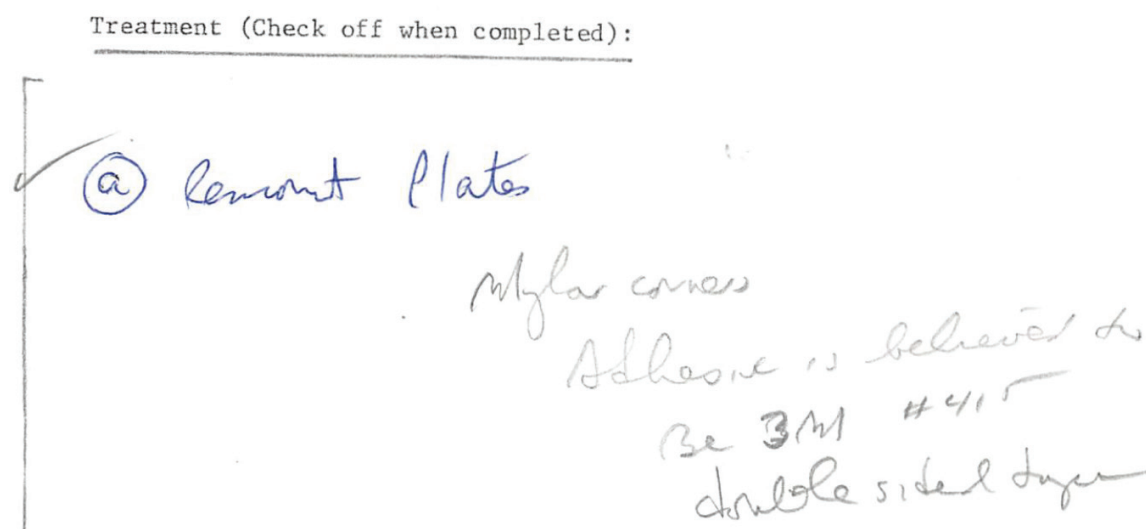 Treatment (Check off when completed):
ⓐ Remount Plates
Mylar corners
Adhesive is believed to
Be 3M #415
double sided tape